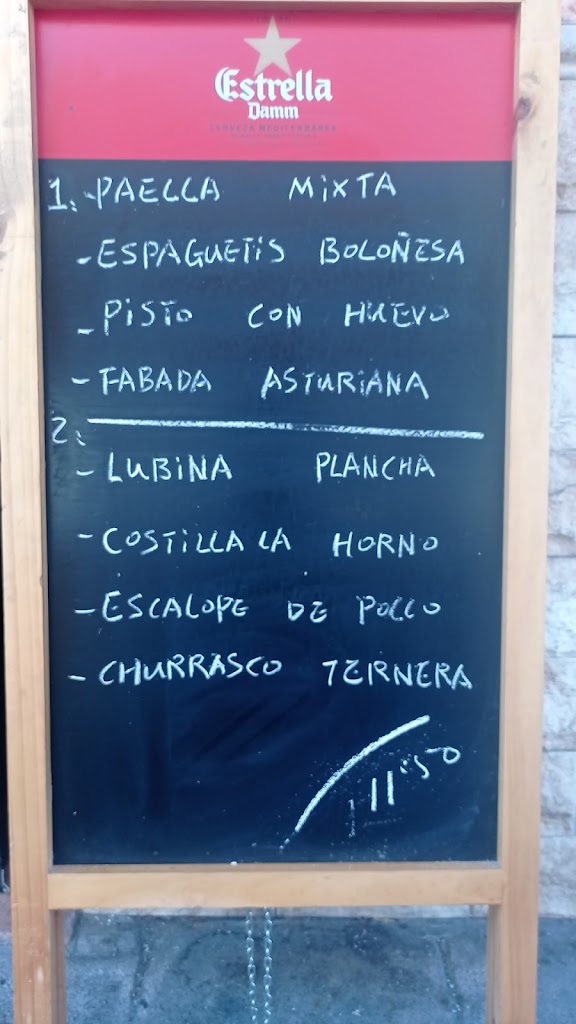 Estrella
Damm
CERVEZA MEDITERRÁNEA
1. -PAELLA MIXTA
-ESPAGUETIS BOLOÑESA
-PISTO CON HUEVO
-FABADA ASTURIANA
2.
-LUBINA PLANCHA
-COSTILLA LA HORNO
-ESCALOPE DE POLLO
-CHURRASCO TERNERA
11'50